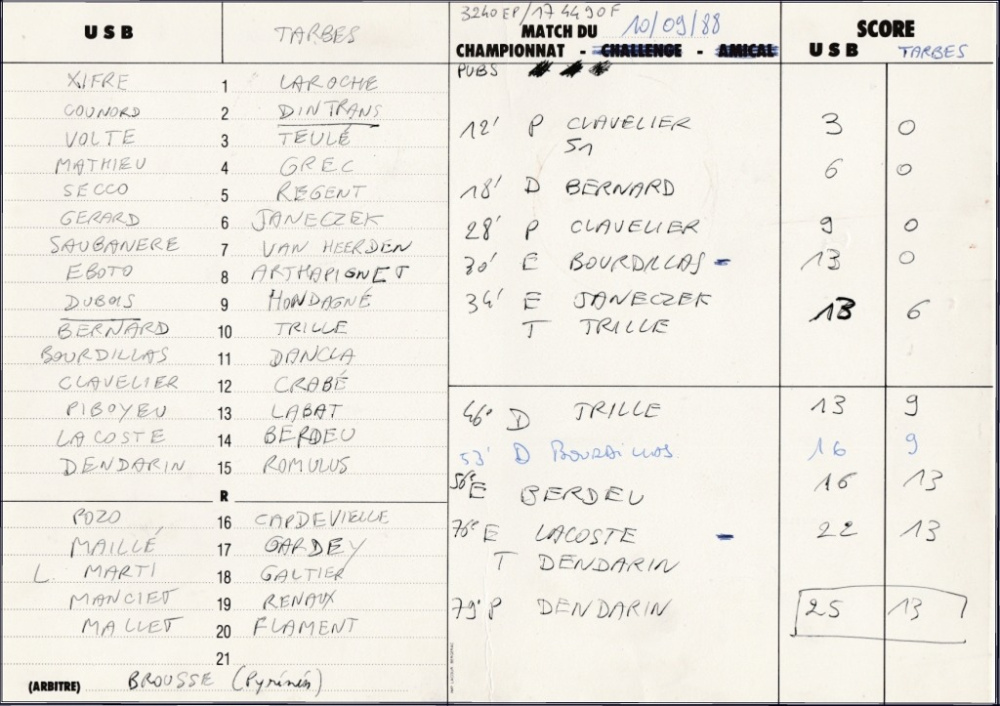 USB TARBES
XIFRE 1 LAROCHE
COUNORD 2 DINTRANS
VOLTE 3 TEULÉ
MATHIEU 4 GREC
SECCO 5 REGENT
GERARD 6 JANECZEK
SAUBANERE 7 VAN HEERDEN
EBOTO 8 ARTHAPIGNET
DUBOIS 9 HONDAGNÉ
BERNARD 10 TRILLE
BOURDILLAS 11 DANCLA
CLAVELIER 12 CRABÉ
PIBOYEU 13 LABAT
LACOSTE 14 BERDEU
DENDARIN 15 ROMULUS
R
POZO 16 CAPDEVIELLE
MAILLÉ 17 GARDEY
L. MARTI 18 GALTIER
MANCIET 19 RENAUX
MALLET 20 FLAMENT
21
(ARBITRE) BROUSSE (Pyrénées)
3240 EP / 174490F
MATCH DU 10/09/88 SCORE
CHAMPIONNAT - CHALLENGE - AMICAL USB TARBES
PUBS
12' P CLAVELIER 3 0
51
18' D BERNARD 6 0
28' P CLAVELIER 9 0
30' E BOURDILLAS - 13 0
34' E JANECZEK 13 6
T TRILLE
46e D TRILLE 13 9
53' D BOURDILLAS 16 9
56e E BERDEU 16 13
76e E LACOSTE - 22 13
T DENDARIN
79' P DENDARIN 25 13